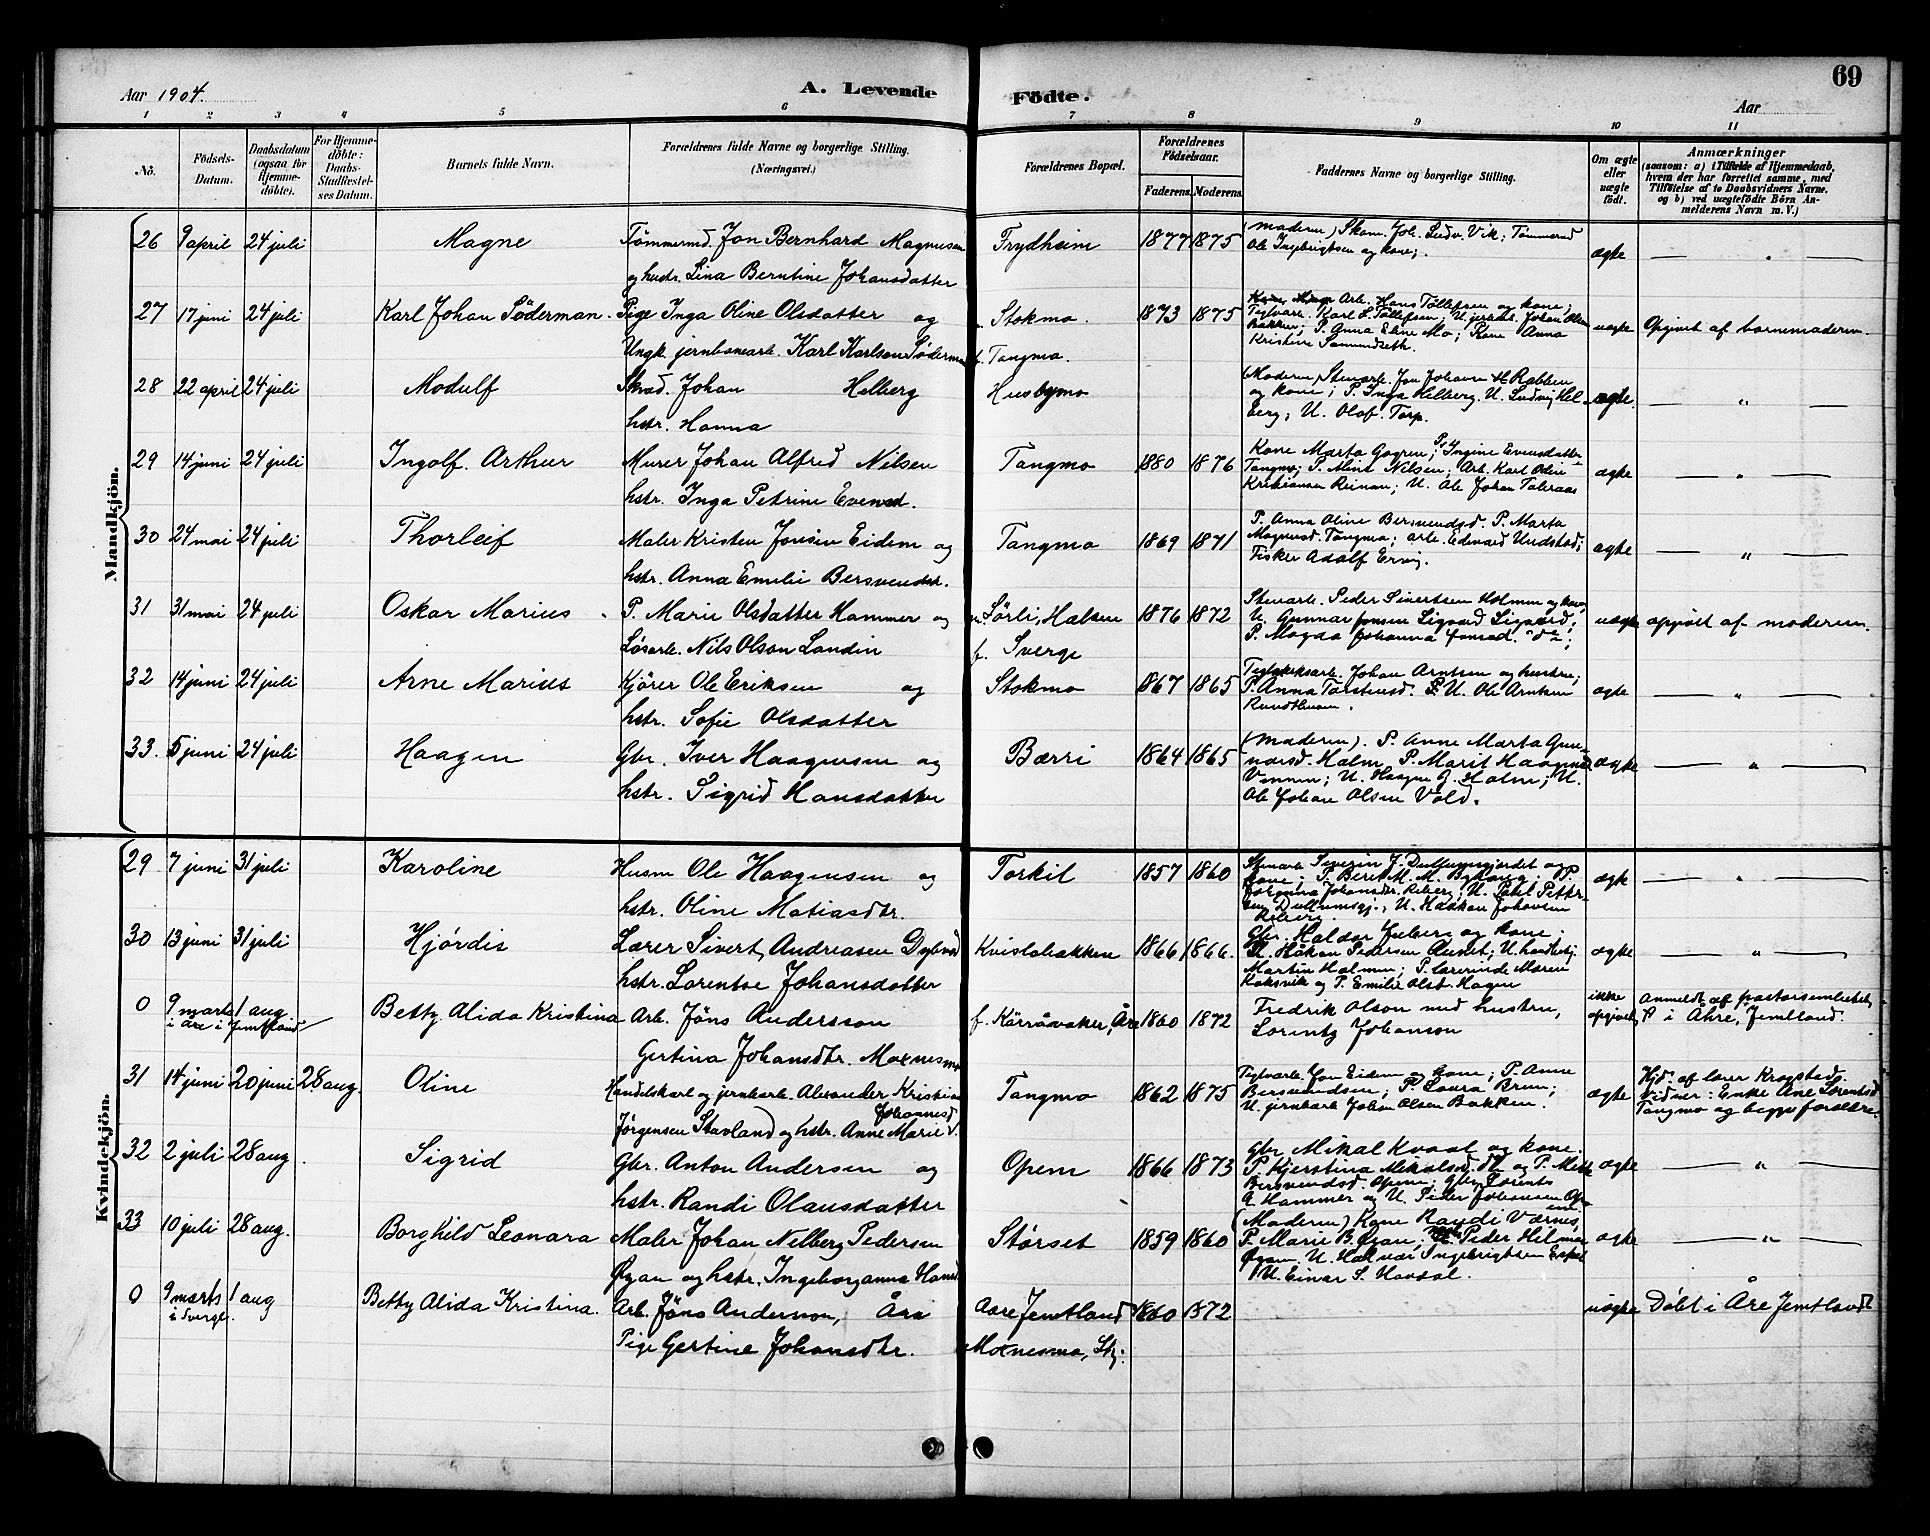 69
Aar 1904.
A. Levende Födte.
Aar
1 2 3 4 5 6 7 8 9 10 11
No.
Födsels-Datum.
Daabsdatum (ogsaa for Hjemme-döbte).
For Hjemme-döbte: Daabs-Stadfæstel-ses Datum.
Barnets fulde Navn.
Forældrenes fulde Navne og borgerlige Stilling.
(Næringsvei.)
Forældrenes Bopæl.
Forældrenes Födselsaar.
Faderens. Moderens.
Faddernes Navne og borgerlige Stilling.
Om ægte eller uægte födt.
Anmærkninger
(saasom: a) i Tilfælde af Hjemmedaab, hvem der har forrettet samme, med Tilföielse af to Daabsvidners Navne. og b) ved uægtefödte Börn An-melderens Navn m. V.)
Mandkjön.
26 9 april 24 juli Magne Tømmermd. Jon Bernhard Magnusen
og hustr. Lina Berntine Johansdatter
Frydheim 1877 1875
(Moderen) Skom. Joh. Ludv. Vik; Tømmermd
Ole Ingebrigtsen og kone;
ægte — " —
27 17 juni 24 juli Karl Johan Söderman. Pige Inga Oline Olsdatter og
Ungk. jernbanearb. Karl Karlsen Söderman
Stokmo.
f. Tangmo.
1873 1875
Arb. Hans Tøllefsen og kone;
Teglvarb. Karl L. Tøllefsen; U. jernb.arb. Johan Olsen
Bakken; P. Anna Eline Mo; Kone Anna
Kristine Samundseth.
uægte Opgivet af barnemoderen
28 22 april 24 juli Modulf Skræd. Johan Helberg
hstr. Hanna
Husbymo
(Moderen) Stenarb. Jon Johansen Rabben
og kone; P. Inga Helberg. U. Ludvig Hel-
berg; U. Olof. Torp.
ægte. — " —
29 14 juni 24 juli Ingolf. Arthur Murer Johan Alfred Nilsen
hstr. Inga Petrine Evensd.
Tangmo 1880 1876
Kone Marta Gagren; P. Ingine Evensdatter
Tangmo; P. Mina Nilsen; Arb. Karl Odin
Kristiansen Reinan; U. Ole Johan Taleraas
ægte — " —
30 24 mai 24 juli Thorleif Maler Kristen Jonsen Eidem og
hstr. Anna Emelie Bersvendsdtr.
Tangmo 1869 1871
P. Anna Oline Bersvendsd. P. Marta
Magnusd. Tangmo; Arb. Edvard Undstad;
Fisker Adolf Ervig.
ægte — " —
31 31 mai 24 juli Oskar Marius P. Marie Olsdatter Hammer og
Løsarb. Nils Olson Landin
m. Sørli, Halsen
f. Sverge
1876 1872
Stenarb. Peder Sivertsen Holmen og kone;
U. Gunnar Jonsen Ligaard Ligaard;
P. Magda Johanna Jonsd. "do";
uægte opgivet af moderen.
32 14 juni 24 juli Arne Marius Kjører Ole Eriksen og
hstr. Sofie Olsdatter
Stokmo 1867 1865
Teglverksarb. Johan Arntsen og hustru;
P. Anna Torstensd. U. Ole Arntsen
Rundthuom.
ægte — " —
33. 5 juni 24 juli Haagen Gbr. Iver Haagensen og
hstr. Sigrid Hansdatter
Bærri 1864 1865
(Moderen). P. Anne Marta Gun-
narsd. Holm, P. Marit Haagensd.
Vennen; U. Haagen G. Holm; U.
Ole Johan Olsen Vold.
ægte — " —
Kvindekjön.
29 7 juni 31 juli Karoline Husm Ole Haagensen og
hstr. Oline Matiasdtr.
Torkil 1857 1860
Stenarb. Severin J. Dullumsgjerdet og
kone; P. Beret M. M. Byhaug; P.
Johanna Johansdtr. Reberg; U. Paul Petter-
sen Dullumsgj.; U. Haakon Johansen
Reberg.
ægte — " —
30 13 juni 31 juli Hjørdis Lærer Sivert Andreasen Dybvad
hstr. Lorentse Johansdatter
Kvislabakken 1866 1866.
Gbr. Haldor Julberg og kone;
Haakon Pedersen Aunet; U. handelsbj.
Martin Holmen; P. lærerinde Maren
Koksvik og P. Emilie Olsd. Hagen
ægte — " —
0 9 marts 1 aug. i Åre i Jemtland Betty Alida Kristina Arb. Jöns Andersson
Gertina Johansdtr. Moxnesmo
f. Kärråvaker, Åre 1860 1872
Fredrik Olson med hustru,
Lorentz Johanson
ikke opgivet
Anmeldt af pastorsembetet
i Åhre, Jemtland.
31 14 juni 20 juni 28 aug. Oline Handelskarl og jernbarb. Alexander Kristian
Jørgensen Stavland og hstr. Anne Marie Johannesd.
Tangmo 1862 1875
Teglvarb. Jon Eidem og kone; P. Anne
Bersvendsen; P. Laura Bruun;
U. jernbarb. Johan Olsen Bakken.
ægte
Hjd. af lærer Kragstad.
Vidner: Enke Ane Lorentsd.
Tangmo og begge forældre.
32 2 juli 28 aug. Sigrid Gbr. Anton Andersen og
hstr. Randi Olausdatter
Opem 1866 1873
Gbr Mikal Kvaal og kone.
P. Kjerstina Mikalsd. og P. Mette
Bersvendsd. Opem; Gbr. Lorents
A. Hammer og U. Peder Johansen Op-
em
ægte — " —
33 10 juli 28 aug. Borghild Leonara Maler Johan Nelberg Pedersen
Øyan og hstr. Ingeborganna Hansd.
Størset 1859 1860
(Moderen) Kone Randi Værnes,
P. Marie B. Øyan; Peder Hilmar
Øyan U. Halvar Ingebrigtsen
U. Einar S. Havdal.
ægte — " —
0 9 marts i Sverge. 1 aug Betty Alida Kristina. Arb. Jöns Anderson, Åre
Pige Gertine Johansdtr.
Aare Jemtland
Moxnesmo, Stj.
1860 1872
uægte Döbt i Åre Jemtland